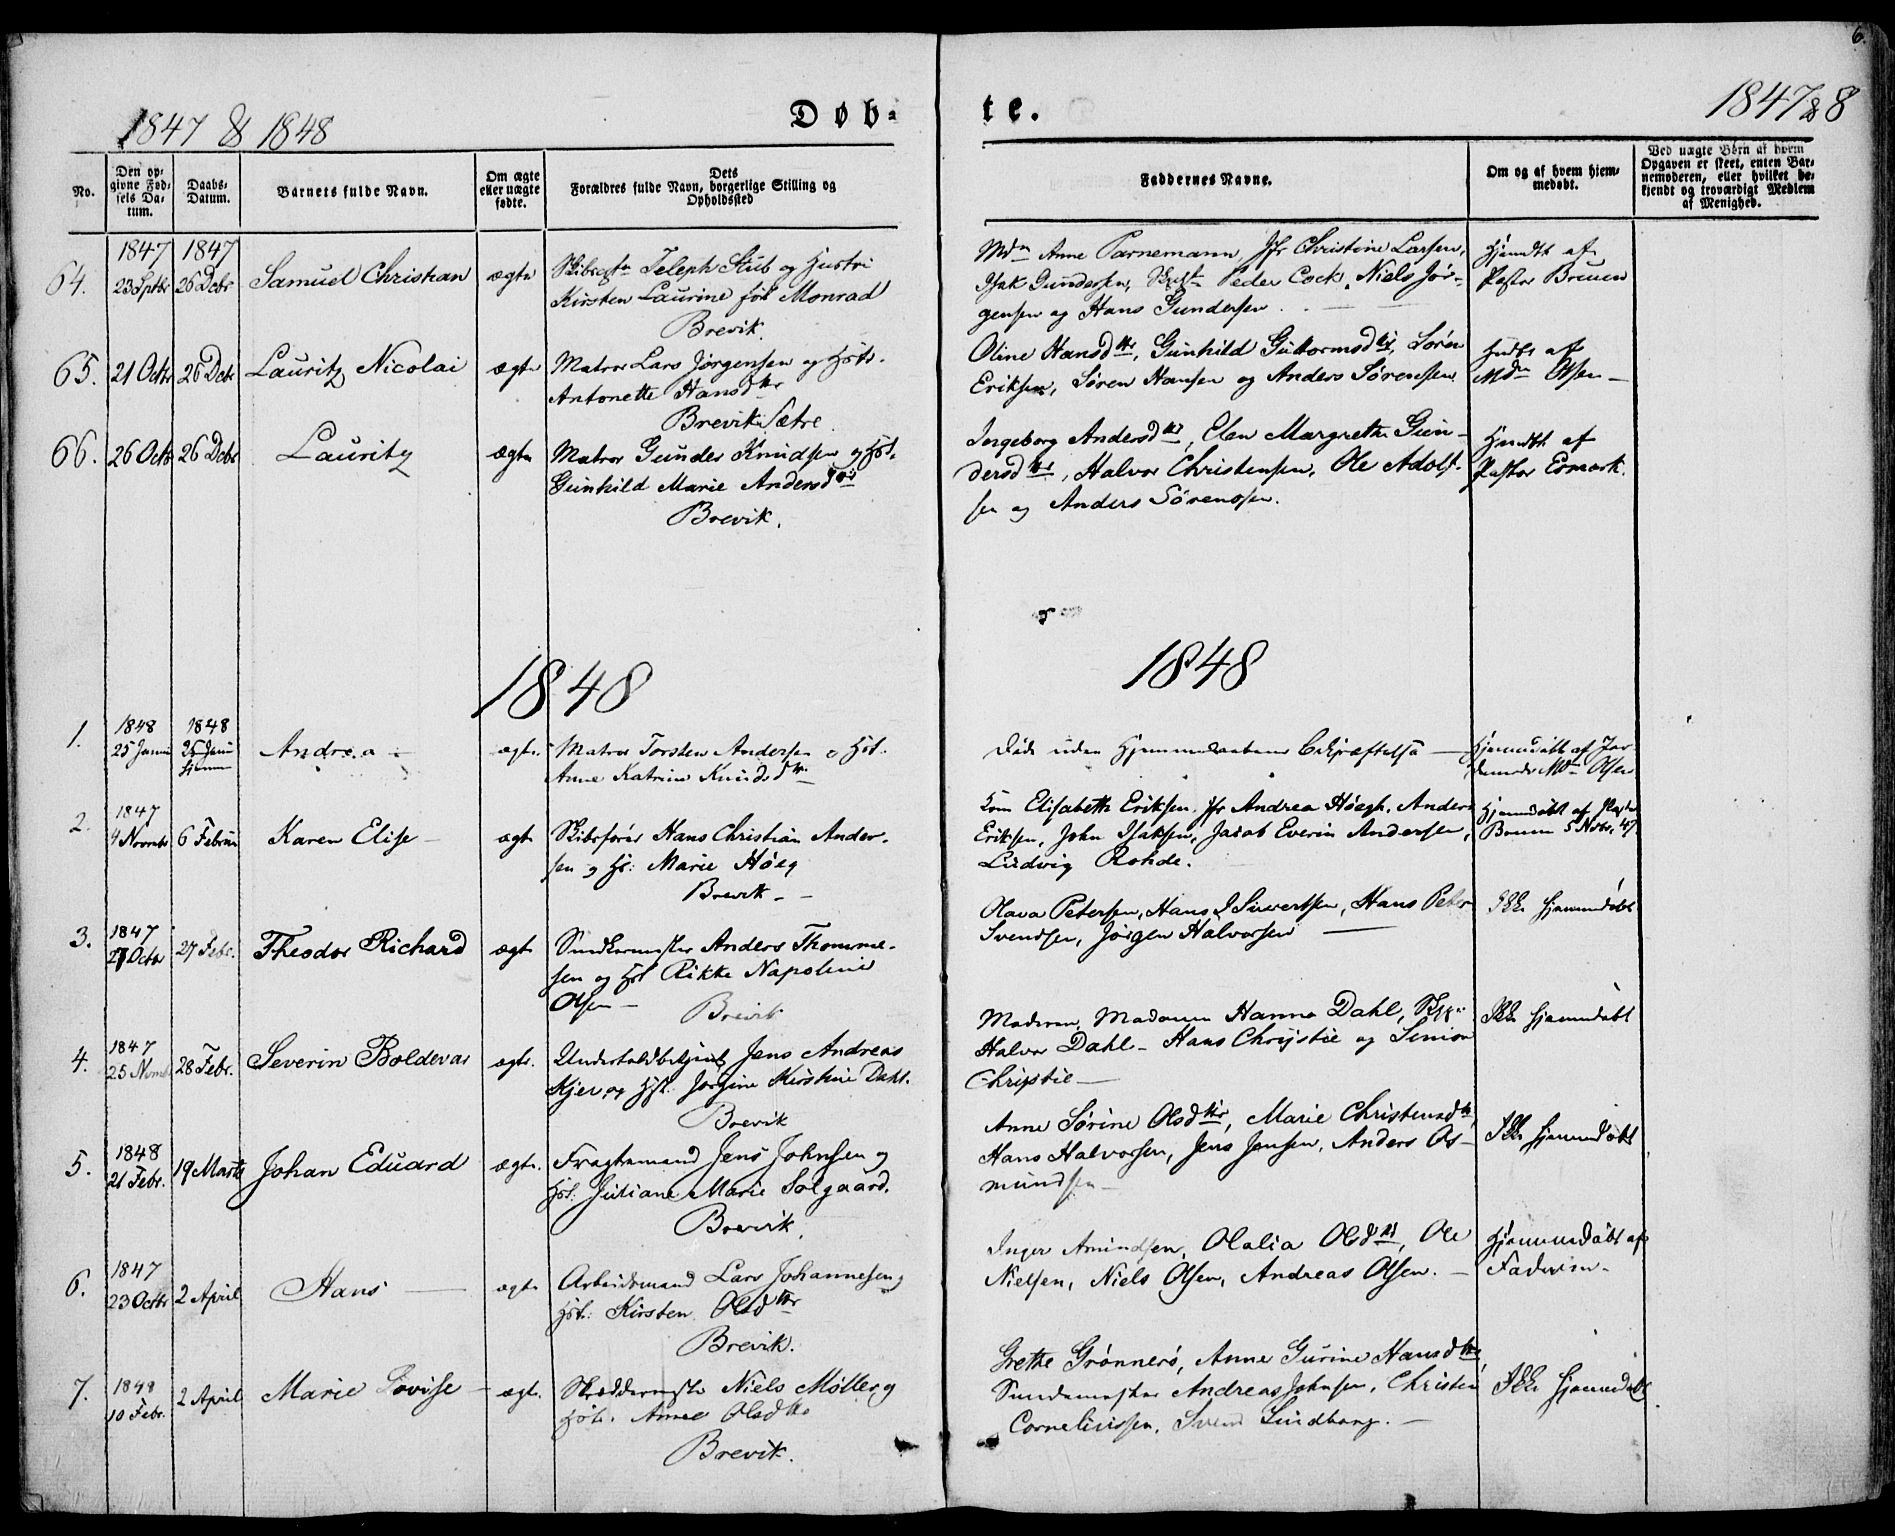 6.
1847 & 1848
Døb-
te.
1847 & 8
No.
Den op-
givne Fød-
sels Da-
tum.
Daabs-
Datum.
Barnets fulde Navn.
Om ægte
eller uægte
fødte.
Dets
Forældres fulde Navn, borgerlige Stilling og
Opholdssted
Faddernes Navne.
Om og af hvem hjem-
medøbt.
Ved uægte Børn af hvem
Opgaven er skeet, enten Bar-
nemoderen, eller hvilket be-
kjendt og troværdigt Medlem
af Menighed.
64.
1847
23 Sptbr
1847
26 Debr
Samuel Christian
ægte
Teleph Stub og Hustru
Kirsten Laurine fød Monrad
Brevik.
Mdn Anne Parnemann, Jfr Christine Larsen,
Isak Gundersen, Peder Cock, Niels Jør-
gensen og Hans Gundersen
Hjemdt af
Pastor Bruun
65.
21 Octbr
26 Debr
Lauritz Nicolai
ægte
Matros Lars Jørgensen og Hstr.
Antonette Hansdttr
Brevik Sætre
Oline Hansdttr, Gunhild Guttormsdttr, Søren
Eriksen, Søren Hansen og Anders Sørensen
Hmdt af
Mdn Olsen
66.
26 Octbr
26 Debr
Lauritz
ægte
Matros Gunder Knudsen og Hst.
Gunhild Marie Andersdttr
Brevik.
Ingeborg Andersdttr, Elen Margrethe Gun-
dersdttr, Halvor Christensen, Ole Adolf-
sen og Anders Sørenssen.
Hmdt af
Pastor Esmark.
1848
1848
1.
1848
25 Januar
1848
25 Januar
hjemme
Andrea
ægte.
Matros Torsten Andersen og Hst.
Anne Katrine Knudsdtr
Døde uden Hjemmedaabens Bekræftelse
Hjemmedøbt af Jor-
demoder Mdm Olsen
2.
1847
4 Novembr
6 Februar
Karen Elise
ægte
Skibsfører Hans Christian Ander-
sen og Hst: Marie Høeg
Brevik
Elisabeth Eriksen, Jfr Andrea Høegh, Anders
Eriksen, John Isaksen, Jacob Everin Andersen,
Ludvig Rohde.
Hjemmedøbt af Pastor
Bruun 5 Nobr. 47.
3.
1847
27 Octbr
27 Febr.
Theodor Richard
ægte
Snedkermester Anders Thomme-
sen og Hst Rikke Napoline
Olsen
Brevik
Olava Petersen, Hans J Siwertsen, Hans Peter
Svendsen, Jørgen Halvorsen
Ikke hjemmedøbt
4.
1847
25 Novmbr
28 Febr.
Severin Boldevar
ægte.
Undertoldbetjent Jens Andreas
Kjer og Hst. Jorgine Kirstine Dahl.
Brevik
Moderen, Madamm Hanna Dahl,
Halvor Dahl - Hans Christie og Simon
Christie
Ikke hjemmedøbt
5.
1848
21 Febr.
19 Marts
Johan Eduard
ægte.
Fragtemand Jens Johnsen og
Hst. Juliane Marie Solgaard.
Brevik.
Anne Sørine Olsdttr, Marie Christensdtr
Hans Halvorsen, Jens Jensen, Anders As-
mundsen
Ikke hjemmedøbt
6.
1847
23 Octbr
2 April
Hans
ægte
Arbeidsmand Lars Johannesen og
Hst: Kirsten Olsdttr
Brevik.
Inger Amundsen, Olalia Olsdttr, Ole
Nielsen, Niels Olsen, Andreas Olsen.
Hjemmedøbt af
Faderen.
7.
1848
10 Febr.
2 April
Marie Lovise
ægte.
Skræddermester Niels Møller og
Hst. Anne Olsdttr
Brevik.
Grethe Grønnerø, Anne Gurine Hansdttr
Andreas Johnsen, Christen
Corneliussen, Svend Lindberg.
Ikke hjemmedøbt